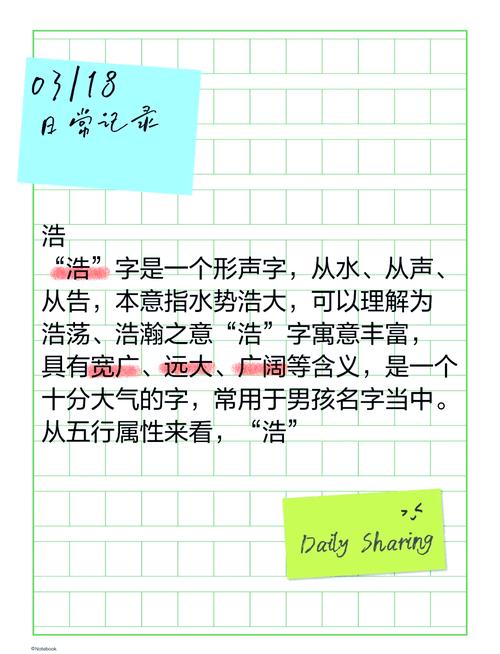 03/18
日常记录
浩
“浩”字是一个形声字，从水、从声、
从告，本意指水势浩大，可以理解为
浩荡、浩瀚之意“浩”字寓意丰富，
具有宽广、远大、广阔等含义，是一个
十分大气的字，常用于男孩名字当中。
从五行属性来看，“浩”
Daily Sharing
©Notebook.